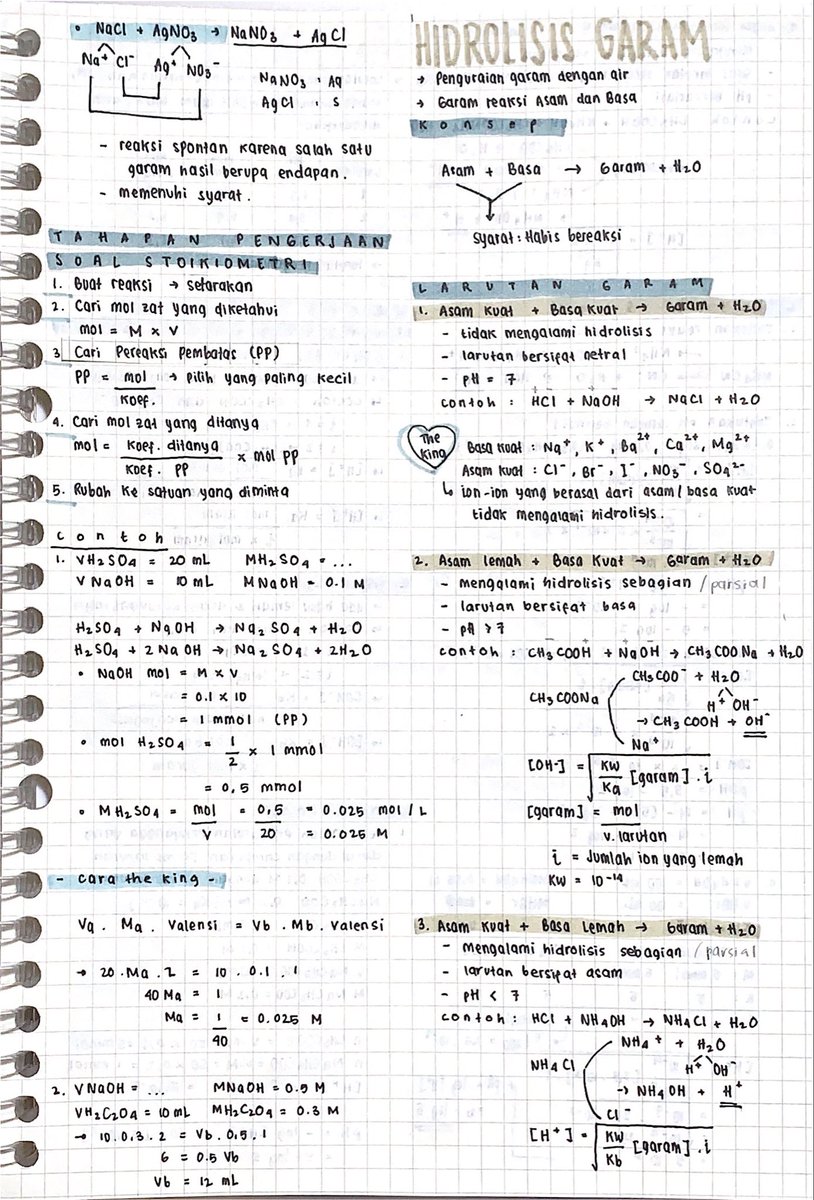 • NaCl + AgNO₃ → NaNO₃ + AgCl
Na⁺ Cl⁻ Ag⁺ NO₃⁻
NaNO₃ : Aq
AgCl : s
- reaksi spontan karena salah satu
garam hasil berupa endapan.
- memenuhi syarat.
TAHAPAN PENGERJAAN
SOAL STOIKIOMETRI
1. Buat reaksi → setarakan
2. Cari mol zat yang diketahui
mol = M x V
3. Cari Pereaksi Pembatas (PP)
PP = mol / koef. → pilih yang paling kecil
4. Cari mol zat yang ditanya
mol = koef. ditanya / koef. PP x mol PP
5. Rubah ke satuan yang diminta
contoh
1. VH₂SO₄ = 20 mL MH₂SO₄ = ...
V NaOH = 10 mL MNaOH = 0.1 M
H₂SO₄ + NaOH → Na₂SO₄ + H₂O
H₂SO₄ + 2NaOH → Na₂SO₄ + 2H₂O
• NaOH mol = M x V
= 0.1 x 10
= 1 mmol (PP)
• mol H₂SO₄ = 1/2 x 1 mmol
= 0,5 mmol
• MH₂SO₄ = mol / V = 0,5 / 20 = 0.025 mol/L
= 0.025 M
- cara the king -
Va . Ma . Valensi = Vb . Mb . Valensi
→ 20 . Ma . 2 = 10 . 0.1 . 1
40 Ma = 1
Ma = 1/40 = 0.025 M
2. VNaOH = ... MNaOH = 0.5 M
VH₂C₂O₄ = 10 mL MH₂C₂O₄ = 0.3 M
→ 10 . 0.3 . 2 = Vb . 0.5 . 1
6 = 0.5 Vb
Vb = 12 mL
HIDROLISIS GARAM
→ Penguraian garam dengan air
→ Garam reaksi Asam dan Basa
Konsep
Asam + Basa → Garam + H₂O
syarat : Habis bereaksi
LARUTAN GARAM
1. Asam Kuat + Basa Kuat → Garam + H₂O
- tidak mengalami hidrolisis
- larutan bersifat netral
- pH = 7
contoh : HCl + NaOH → NaCl + H₂O
The King
Basa kuat : Na⁺, K⁺, Ba²⁺, Ca²⁺, Mg²⁺
Asam kuat : Cl⁻, Br⁻, I⁻, NO₃⁻, SO₄²⁻
↳ ion-ion yang berasal dari asam/basa kuat
tidak mengalami hidrolisis.
2. Asam lemah + Basa Kuat → Garam + H₂O
- mengalami hidrolisis sebagian /parsial
- larutan bersifat basa
- pH > 7
contoh : CH₃COOH + NaOH → CH₃COONa + H₂O
CH₃COONa
CH₃COO⁻ + H₂O
H⁺ OH⁻
→ CH₃COOH + OH⁻
Na⁺
[OH-] = √ Kw/Ka [garam] . i
[garam] = mol / v. larutan
i = Jumlah ion yang lemah
Kw = 10⁻¹⁴
3. Asam Kuat + Basa Lemah → Garam + H₂O
- mengalami hidrolisis sebagian /parsial
- larutan bersifat asam
- pH < 7
contoh : HCl + NH₄OH → NH₄Cl + H₂O
NH₄Cl
NH₄⁺ + H₂O
H⁺ OH⁻
→ NH₄OH + H⁺
Cl⁻
[H⁺] = √ Kw/Kb [garam] . i